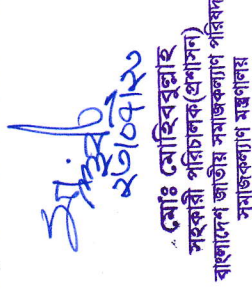 মোঃ মোহিববুল্লাহ
সহকারী পরিচালক(প্রশাসন)
বাংলাদেশ জাতীয় সমাজকল্যাণ পরিষদ
সমাজকল্যাণ মন্ত্রণালয়